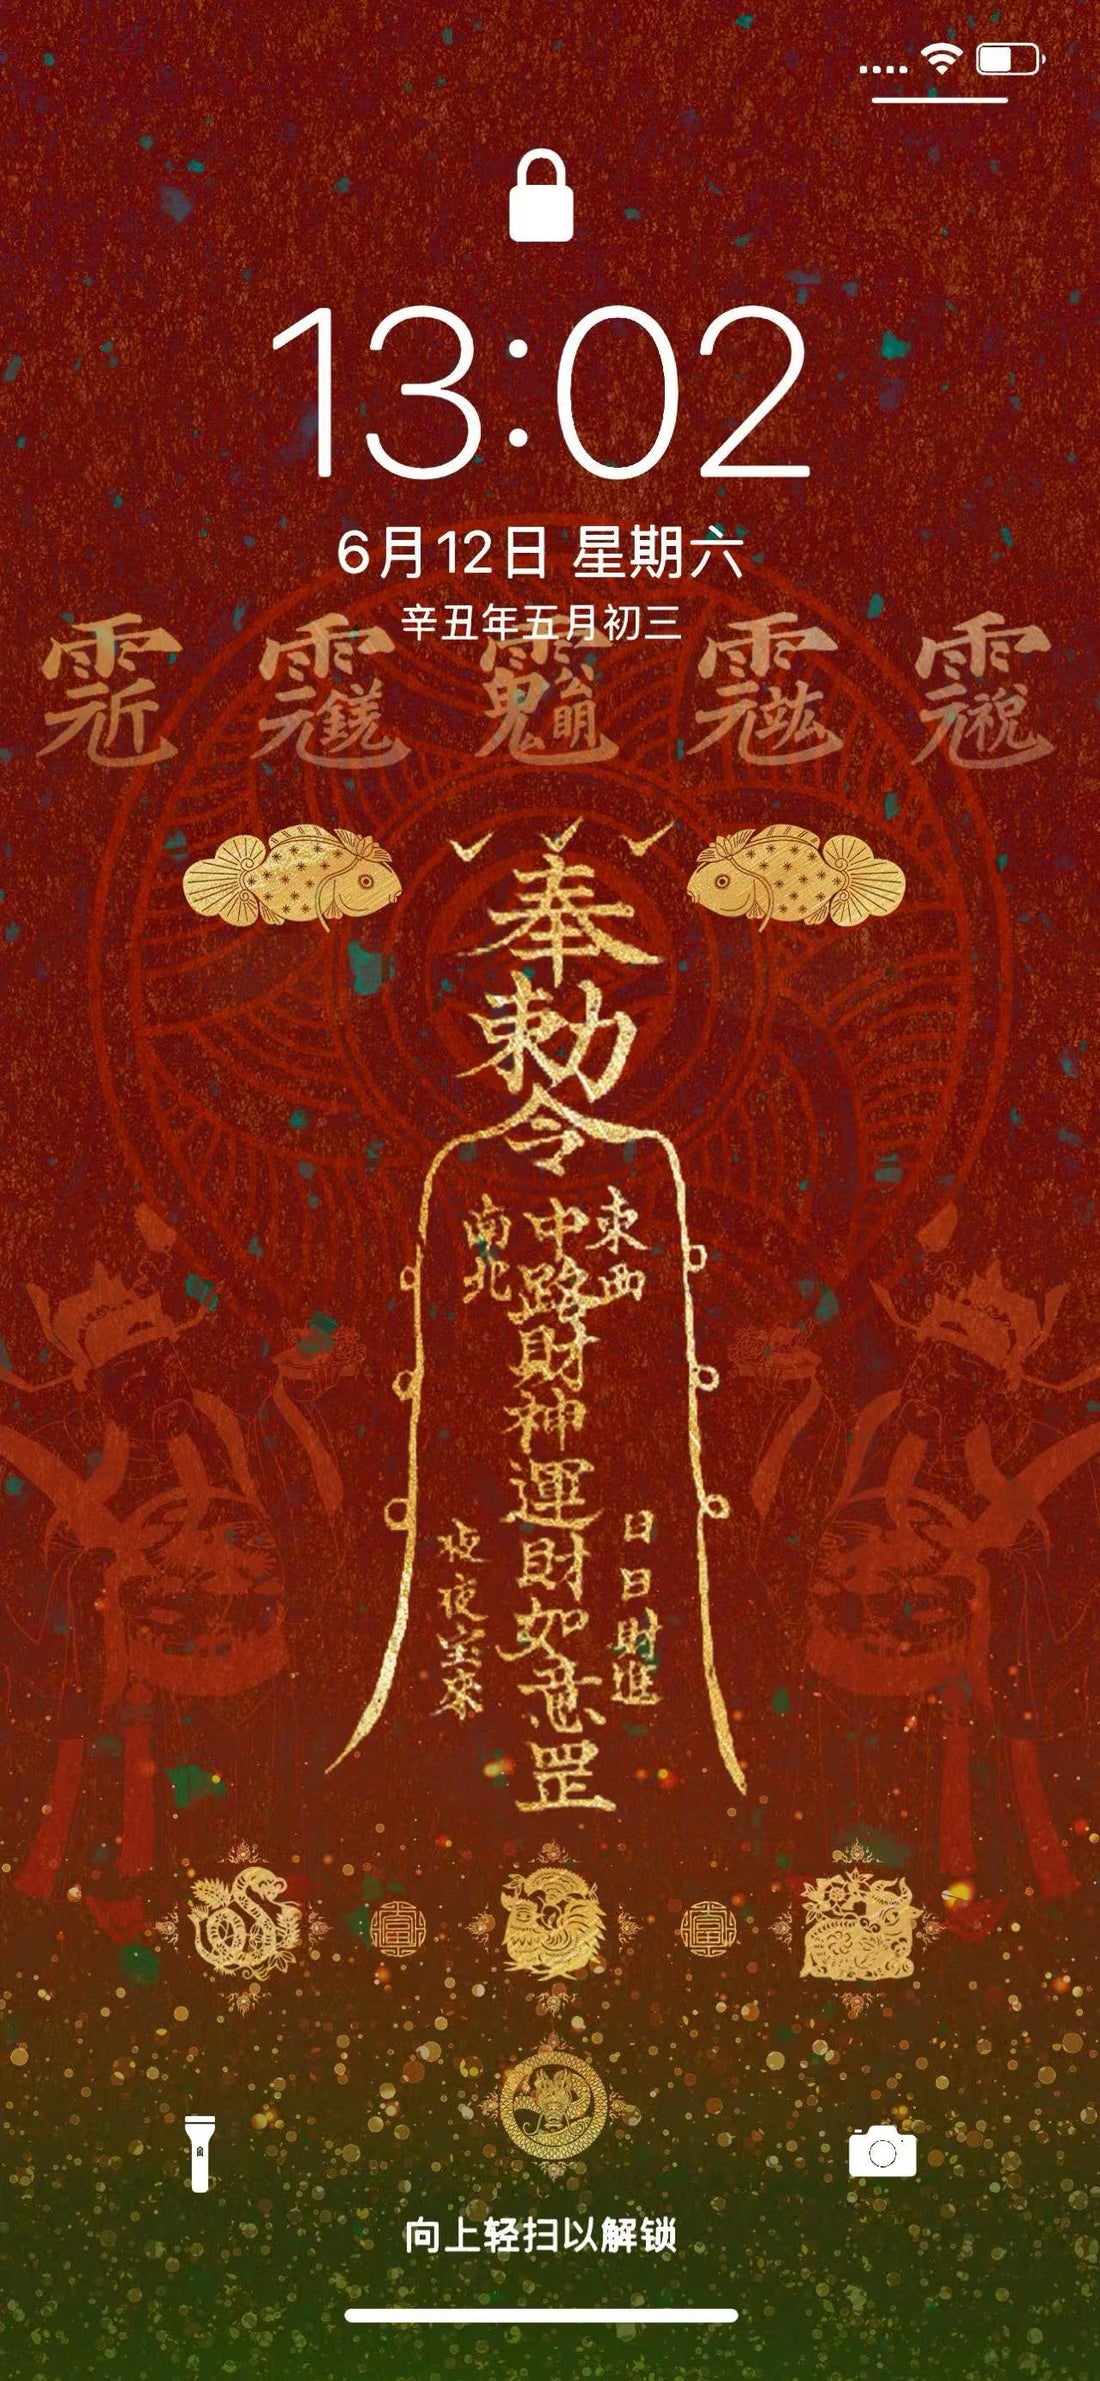 13:02
6月12日 星期六
辛丑年五月初三
奉
勅
令
東西
中路財神運財如意罡
南北
日日財進
夜夜宝來
向上轻扫以解锁